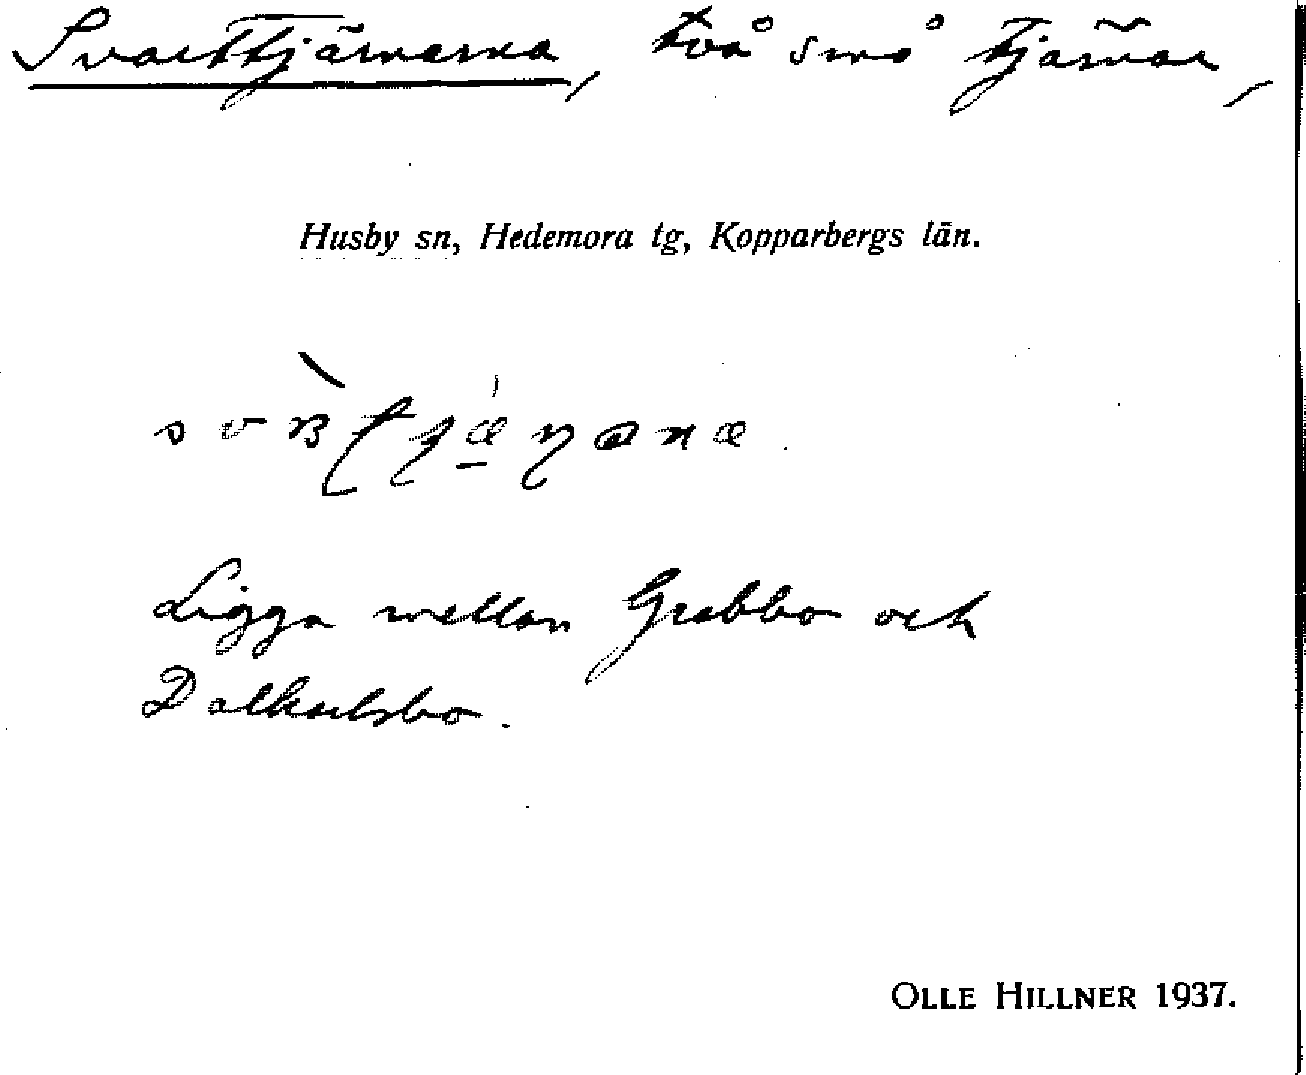 Svarttjärnarna, två små tjärnar,
Husby sn, Hedemora tg, Kopparbergs län.
Ligga mellan Grabbo och
Dalkarlsbo.
OLLE HILLNER 1937.